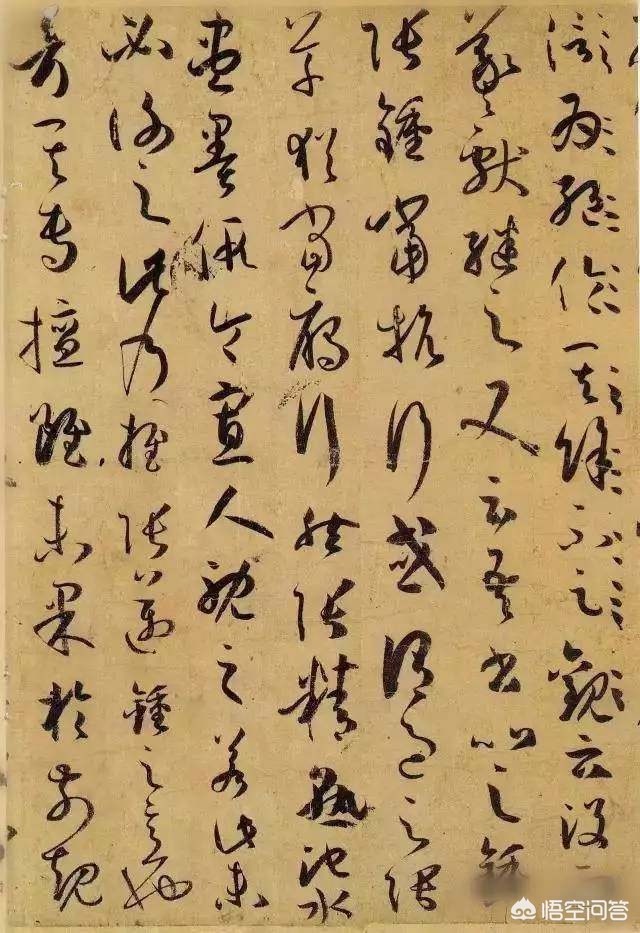 信為絕倫其餘不足觀云沒
羲獻繼之又云吾書比之鍾
張鍾當抗行或謂過之張
草猶當鴈行然張精熟池水
盡墨假令寡人耽之若此未
必謝之此乃推張邁鍾之意也
考其專擅雖未果於前規
悟空问答